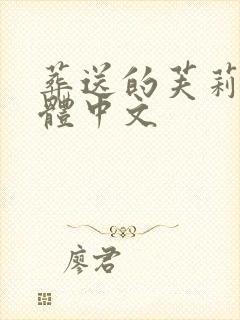 葬送的芙莉
體中文
廖君